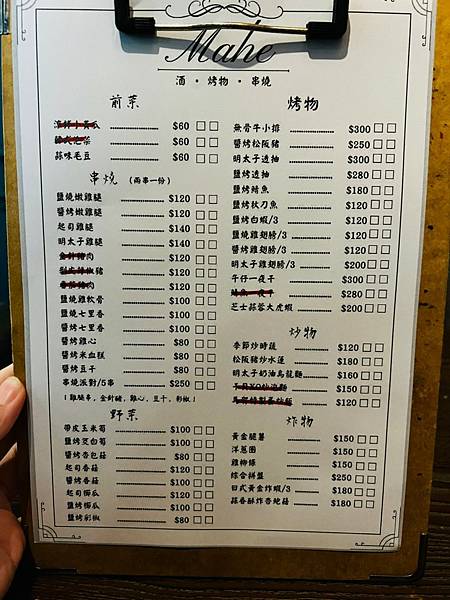 Mahe
酒・烤物・串燒
前菜
$60
$60
蒜味毛豆 $60
串燒 (兩串一份)
鹽燒嫩雞腿 $120
醬烤嫩雞腿 $120
起司雞腿 $140
明太子雞腿 $140
$120
$120
$120
鹽燒雞軟骨 $100
鹽燒七里香 $100
醬烤七里香 $100
醬烤雞心 $80
醬烤米血糕 $80
醬烤豆干 $80
串燒派對/5串 $250
(雞腿串,金針豬,雞心,豆干,彩椒)
野菜
帶皮玉米筍 $100
鹽烤茭白筍 $100
醬烤杏包菇 $80
起司香菇 $120
醬烤香菇 $100
起司櫛瓜 $120
鹽烤櫛瓜 $100
鹽烤彩椒 $80
烤物
無骨牛小排 $300
醬烤松阪豬 $250
明太子透抽 $300
鹽烤透抽 $280
鹽烤鯖魚 $180
鹽烤秋刀魚 $120
鹽烤白蝦/3 $120
鹽燒雞翅膀/3 $120
醬烤雞翅膀/3 $120
明太子雞翅膀/3 $200
午仔一夜干 $300
一夜干 $280
芝士蒜蓉大虎蝦 $200
炒物
季節炒時蔬 $120
松阪豬炒水蓮 $180
明太子奶油烏龍麵 $160
$150
$120
炸物
黃金脆薯 $150
洋蔥圈 $150
雞柳條 $150
綜合拼盤 $250
日式黃金炸蝦/3 $180
蒜香酥炸杏鮑菇 $180